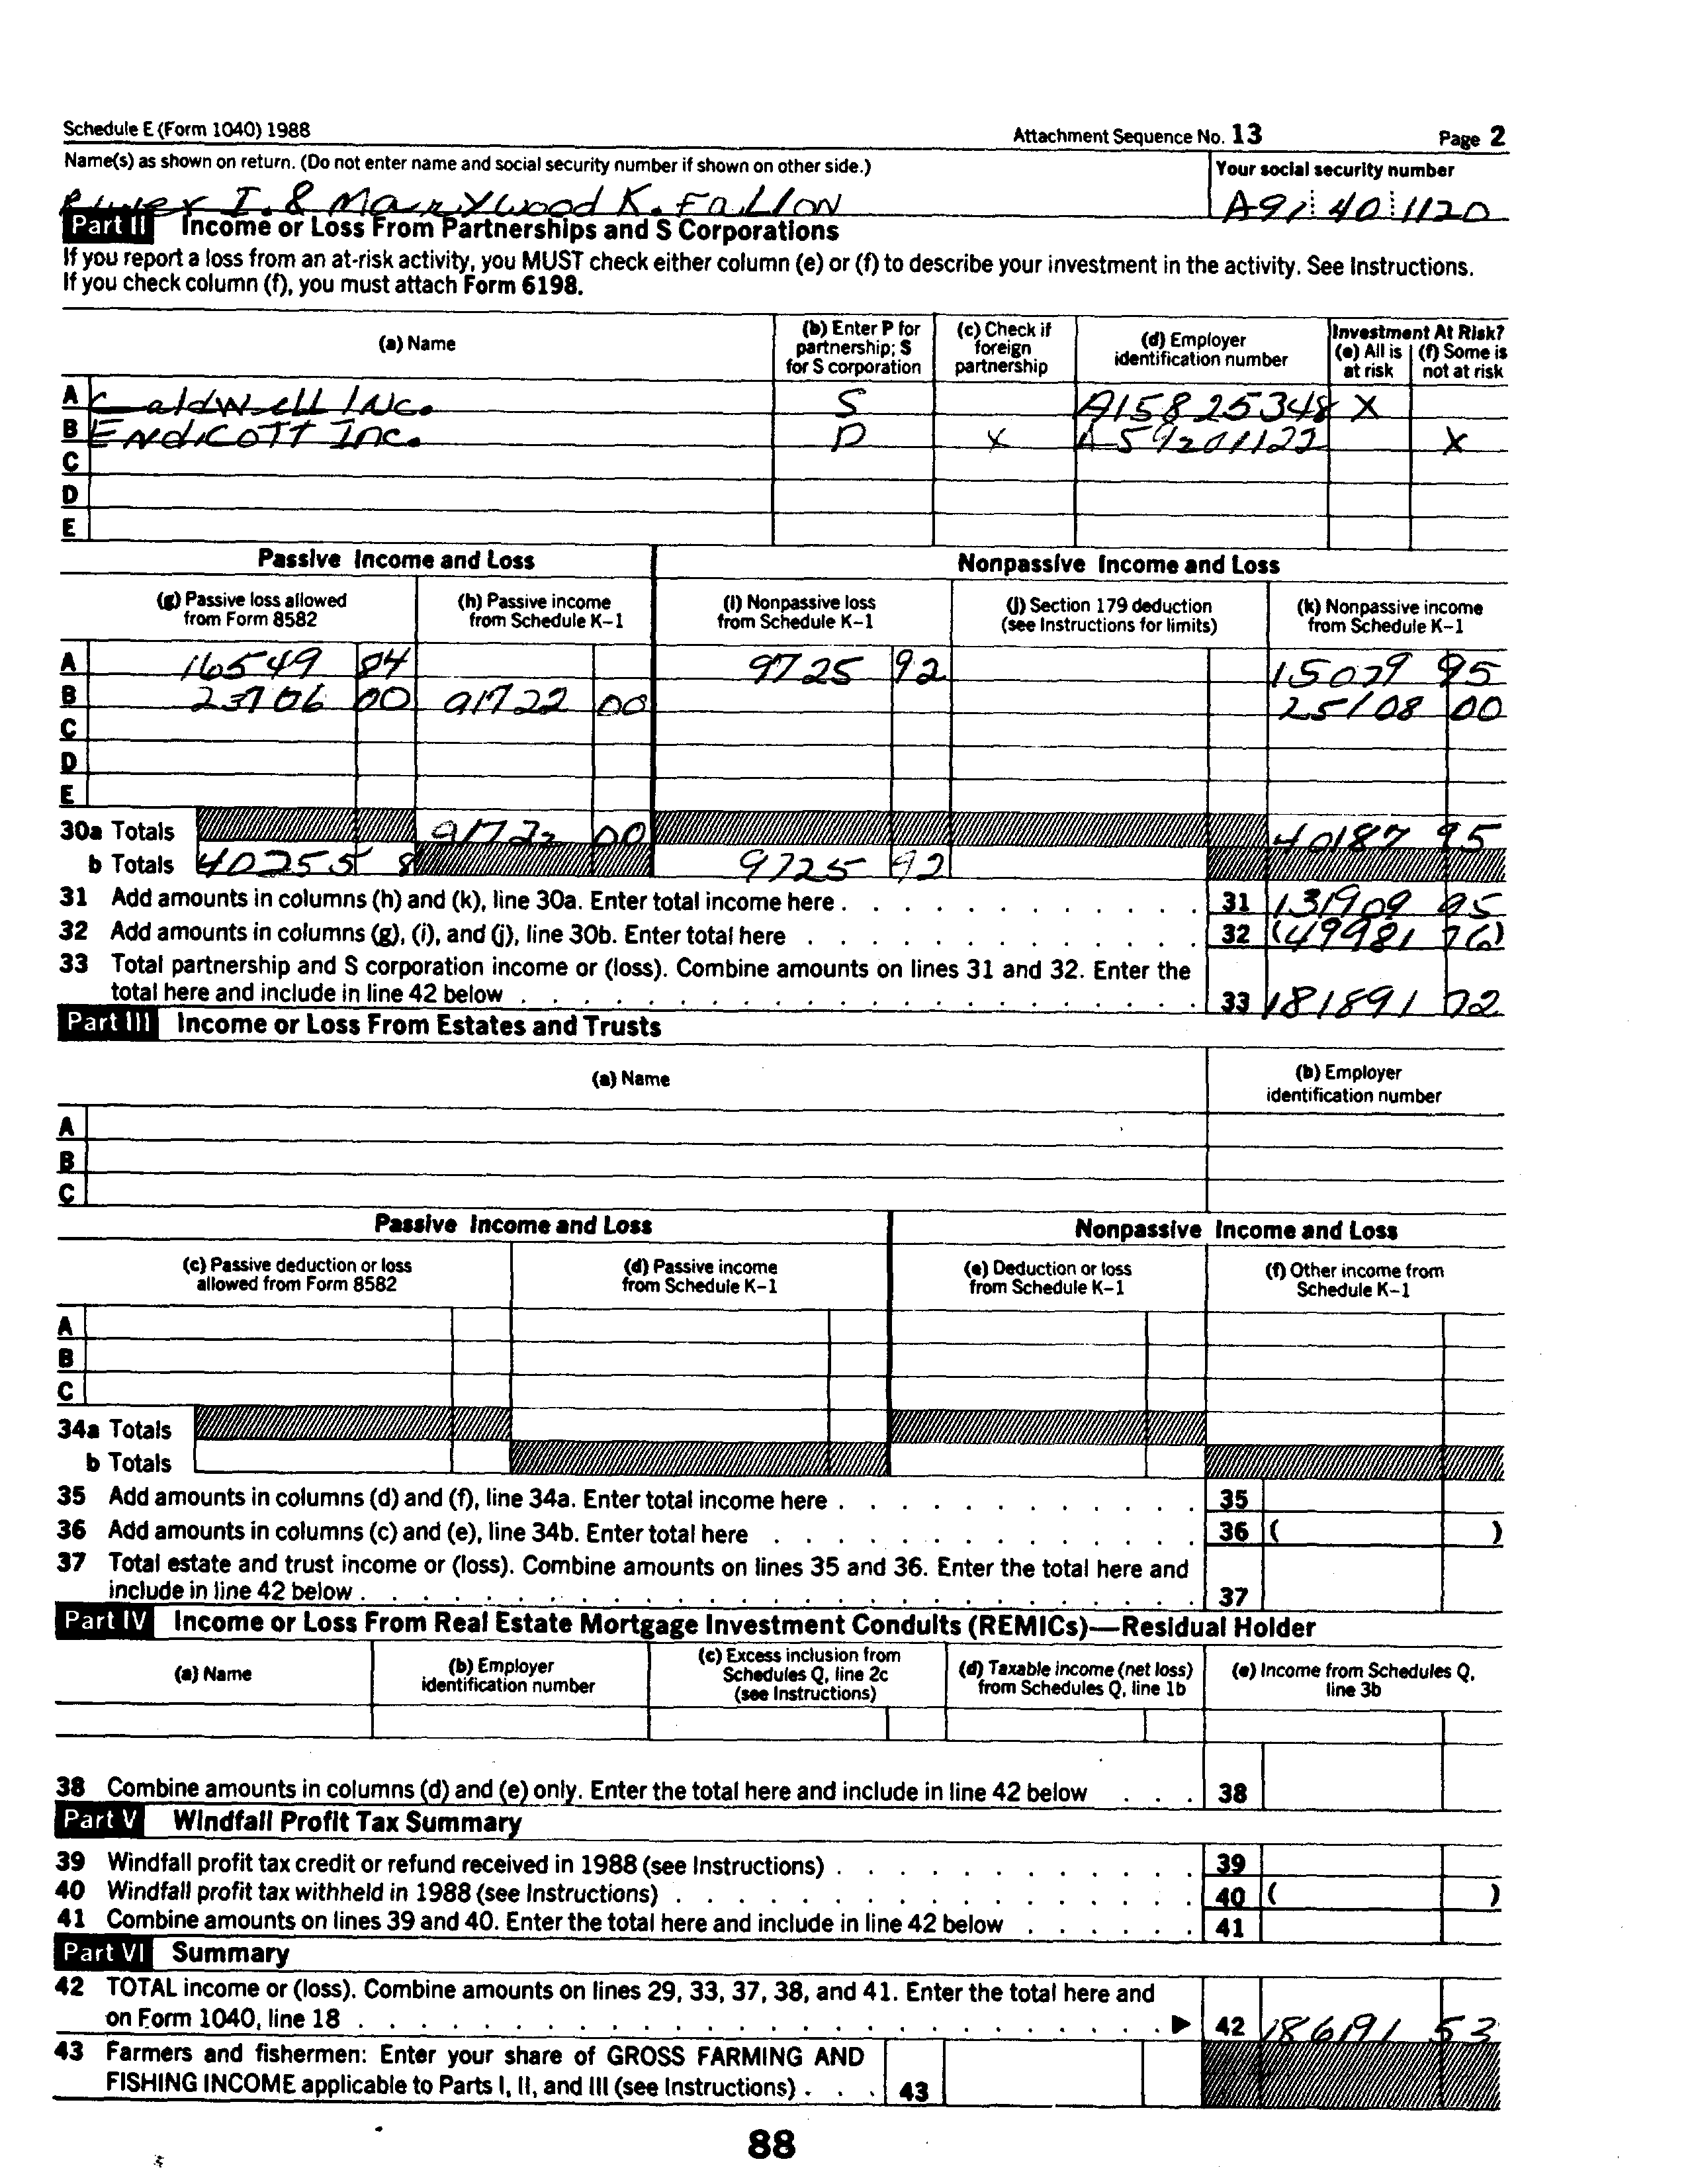 Schedule E (Form 1040) 1988 Attachment Sequence No. 13 Page 2
Name(s) as shown on return. (Do not enter name and social security number if shown on other side.) Your social security number
I. & Marywood K. Fallon A91 40 1120
Part II Income or Loss From Partnerships and S Corporations
If you report a loss from an at-risk activity, you MUST check either column (e) or (f) to describe your investment in the activity. See Instructions.
If you check column (f), you must attach Form 6198.
(a) Name (b) Enter P for partnership; S for S corporation (c) Check if foreign partnership (d) Employer identification number Investment At Risk? (e) All is at risk (f) Some is not at risk
A Caldwell Inc. S A15825348 X
B Endicott Inc. P X A59201122 X
C
D
E
Passive Income and Loss Nonpassive Income and Loss
(g) Passive loss allowed from Form 8582 (h) Passive income from Schedule K-1 (i) Nonpassive loss from Schedule K-1 (j) Section 179 deduction (see Instructions for limits) (k) Nonpassive income from Schedule K-1
A 16549 84 9725 92 15079 95
B 23706 00 91722 00 25108 00
C
D
E
30a Totals 91722 00 40187 95
b Totals 40255 8 9725 92
31 Add amounts in columns (h) and (k), line 30a. Enter total income here 31 131909 95
32 Add amounts in columns (g), (i), and (j), line 30b. Enter total here 32 (49981 76)
33 Total partnership and S corporation income or (loss). Combine amounts on lines 31 and 32. Enter the
total here and include in line 42 below 33 181891 72
Part III Income or Loss From Estates and Trusts
(a) Name (b) Employer identification number
A
B
C
Passive Income and Loss Nonpassive Income and Loss
(c) Passive deduction or loss allowed from Form 8582 (d) Passive income from Schedule K-1 (e) Deduction or loss from Schedule K-1 (f) Other income from Schedule K-1
A
B
C
34a Totals
b Totals
35 Add amounts in columns (d) and (f), line 34a. Enter total income here 35
36 Add amounts in columns (c) and (e), line 34b. Enter total here 36 ( )
37 Total estate and trust income or (loss). Combine amounts on lines 35 and 36. Enter the total here and
include in line 42 below 37
Part IV Income or Loss From Real Estate Mortgage Investment Conduits (REMICs)—Residual Holder
(a) Name (b) Employer identification number (c) Excess inclusion from Schedules Q, line 2c (see Instructions) (d) Taxable income (net loss) from Schedules Q, line 1b (e) Income from Schedules Q, line 3b
38 Combine amounts in columns (d) and (e) only. Enter the total here and include in line 42 below 38
Part V Windfall Profit Tax Summary
39 Windfall profit tax credit or refund received in 1988 (see Instructions) 39
40 Windfall profit tax withheld in 1988 (see Instructions) 40 ( )
41 Combine amounts on lines 39 and 40. Enter the total here and include in line 42 below 41
Part VI Summary
42 TOTAL income or (loss). Combine amounts on lines 29, 33, 37, 38, and 41. Enter the total here and
on Form 1040, line 18 ▶ 42 186191 53
43 Farmers and fishermen: Enter your share of GROSS FARMING AND
FISHING INCOME applicable to Parts I, II, and III (see Instructions) 43
88